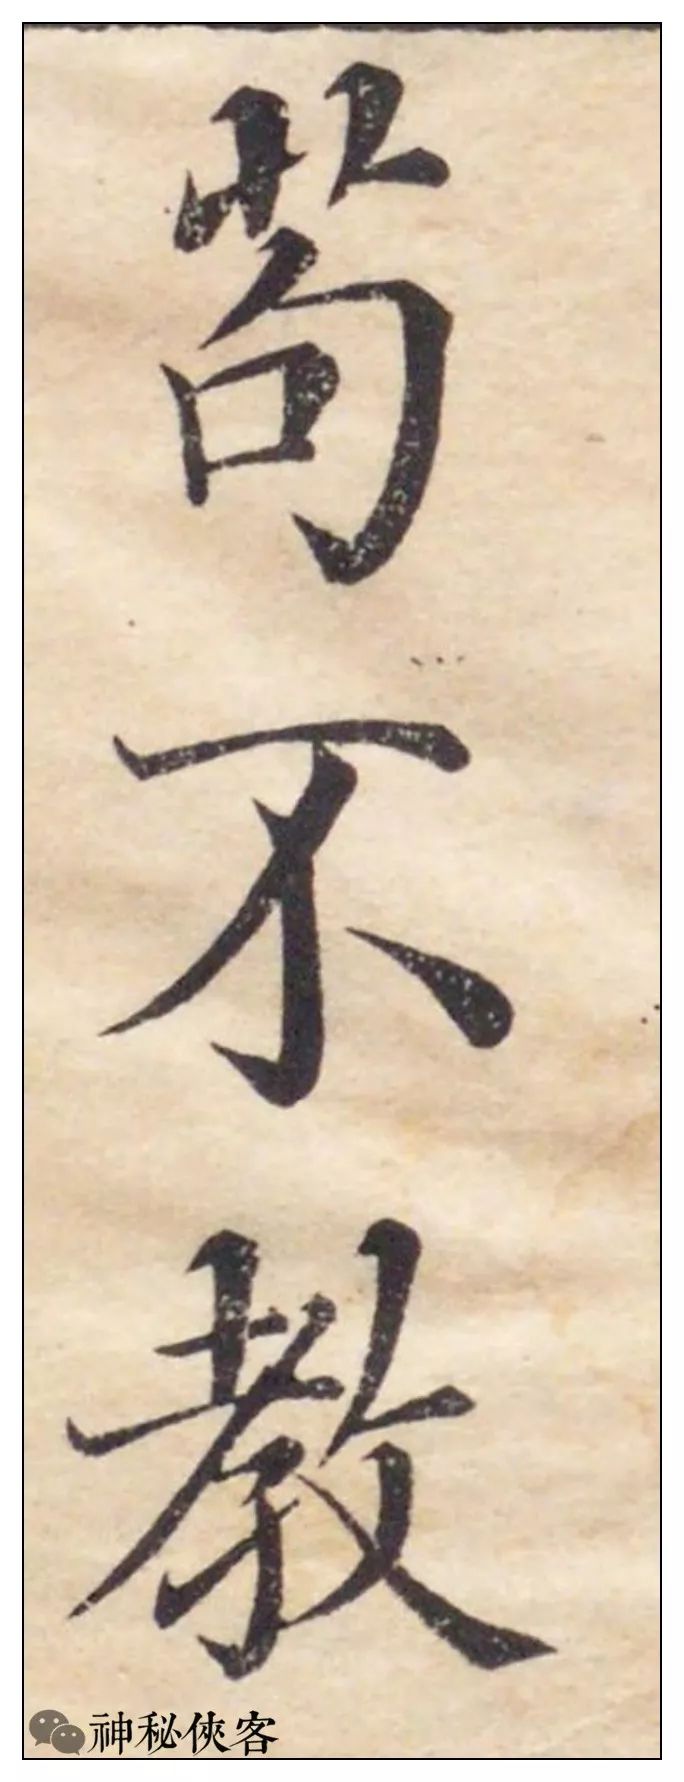 苟不教
神秘侠客